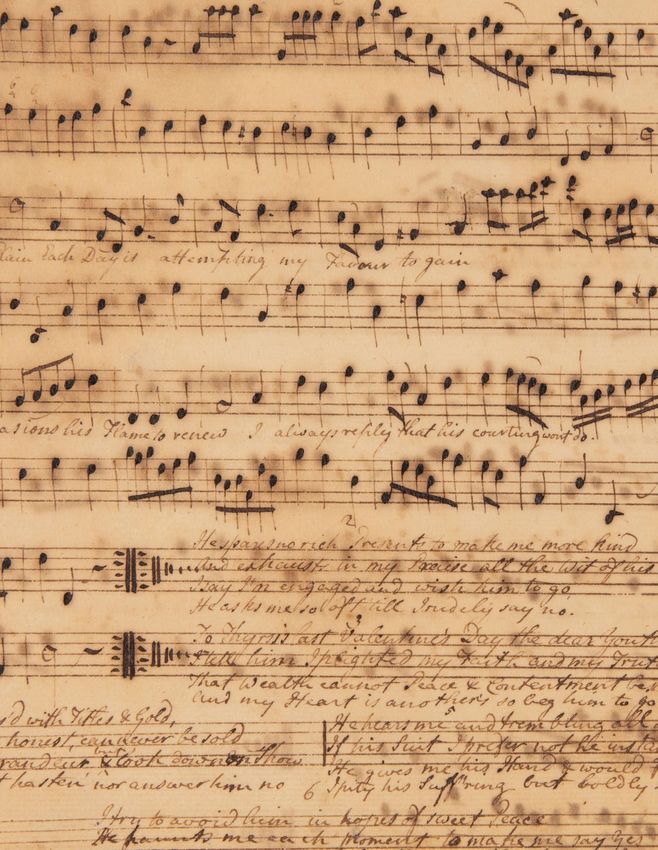 lain Each Day is attempting my Favour to gain
asions his Flame to renew I always reply that his courting wont do.
2
He spares no rich Presents to make me more kind
And exhausts in my Praise all the wit of his
I say I'm engaged and wish him to go
He asks me so oft till I rudely say no.
3
To Thyrsis last Valentine's Day the dear Youth
I tell him I plighted my Faith and my Trut
That Wealth cannot Peace & Contentment be
and my Heart is another's so beg him to go
s'd with Titles & Gold,
honest, can never be sold
randeur & look down on Show
t hasten nor answer him no
He hears me and trembling all
If his Suit I prefer not he
He gives me his Hand & would
6 I pity his Suff'ring but boldly
I try to avoid him in hopes of sweet Peace
He haunts me each moment to make me say Yes